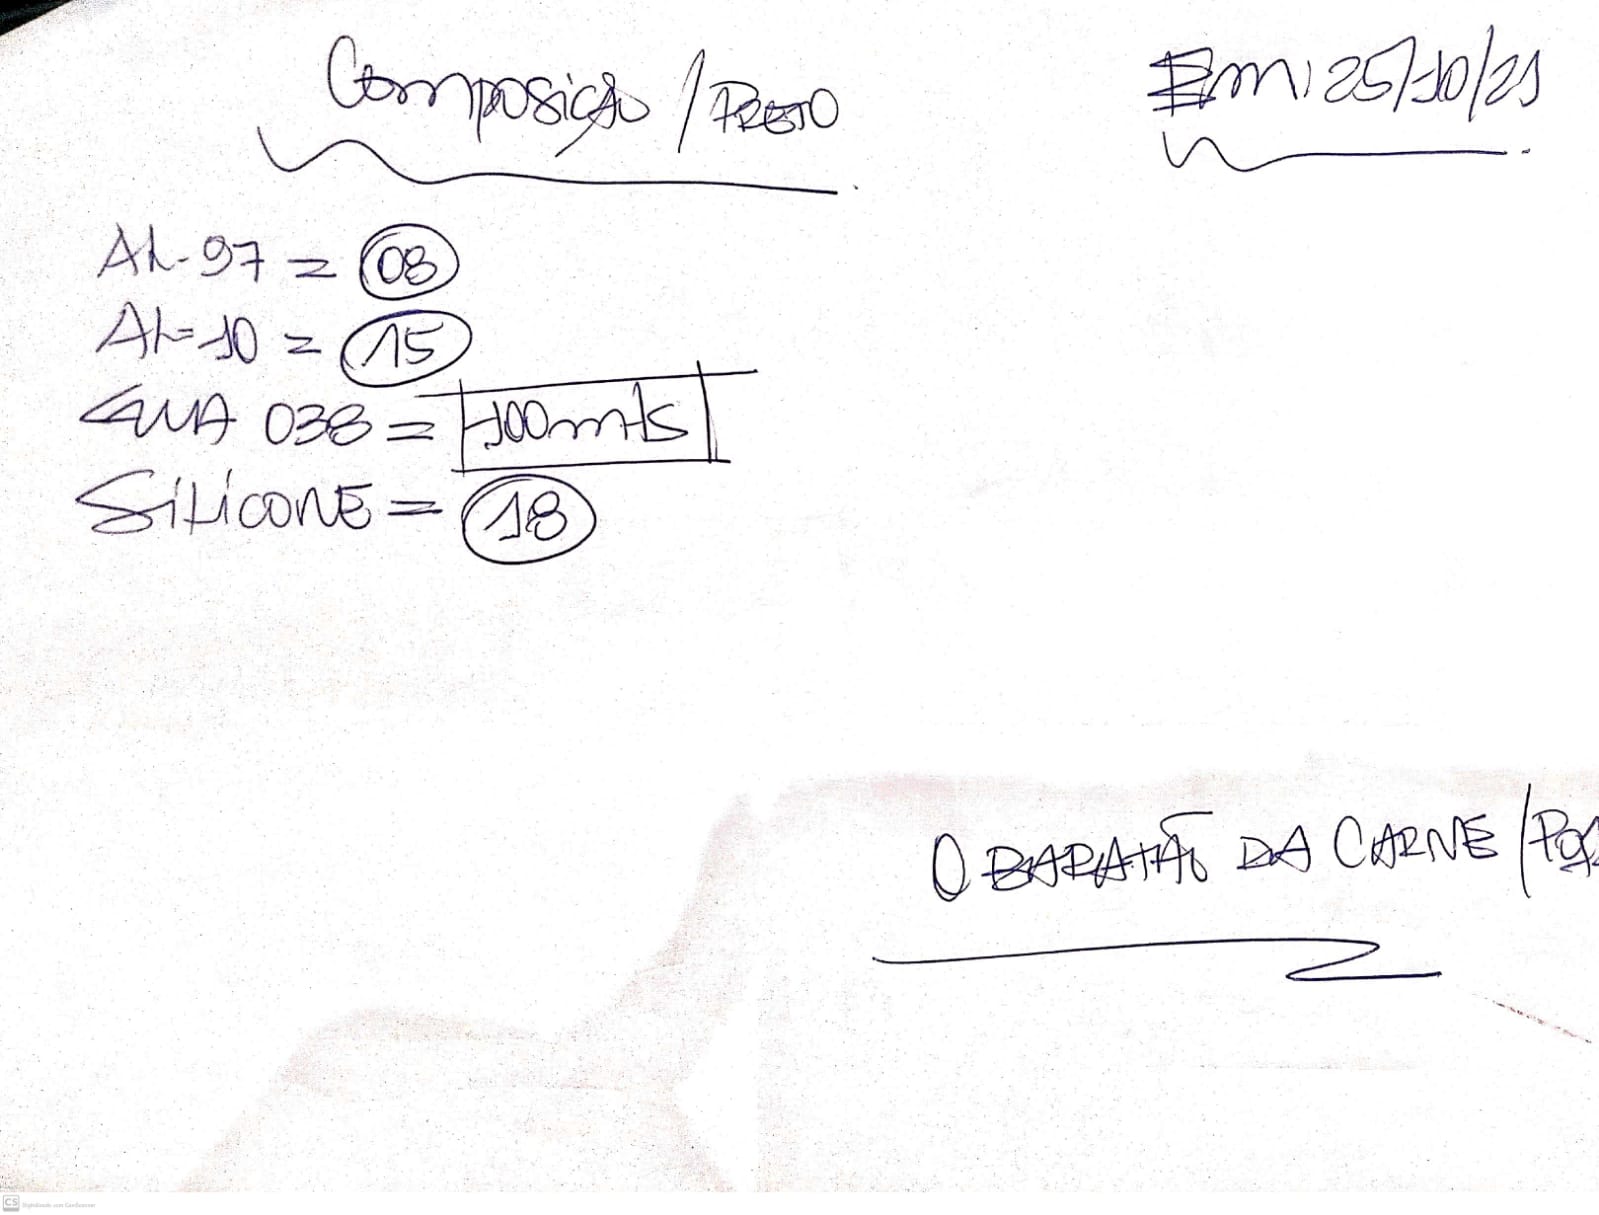 Composição / PRETO
Em: 25/10/21
AL-97 = 08
AL-10 = 15
GUA 038 = 100mts
SILICONE = 18
O BARATÃO DA CARNE /
CS Digitalizado com CamScanner